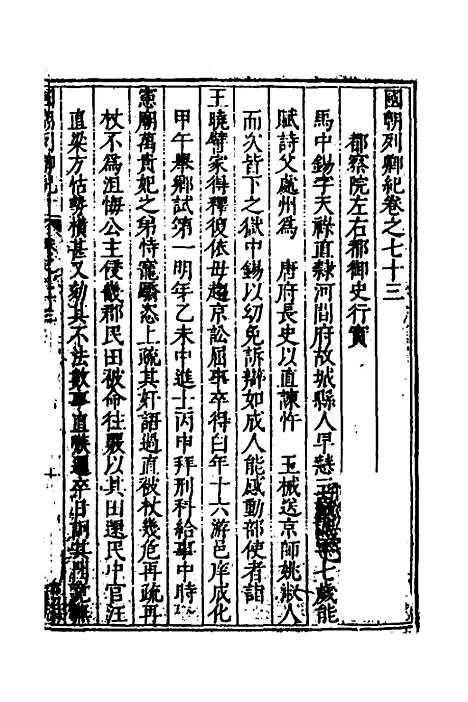 國朝列卿紀卷之七十三
都察院左右都御史行實
馬中錫字天祿直隸河間府故城縣人早慧七歲能
賦詩父處州爲 唐府長史以直諫忤 王械送京師姚淑人
而次皆下之獄中錫以幼免訴辯如成人能感動部使者詣
王曉譬家得釋復依母趨京訟屈事卒得白年十六游邑庠成化
甲午舉鄉試第一明年乙未中進士丙申拜刑科給事中時
憲廟萬貴妃之弟恃寵驕恣上疏其奸語過直被杖幾危再疏再
杖不爲沮悔公主侵畿郡民田被命往覈以其田還民中官汪
直梁方怙勢橫甚又劾其不法數事直
國朝列卿紀